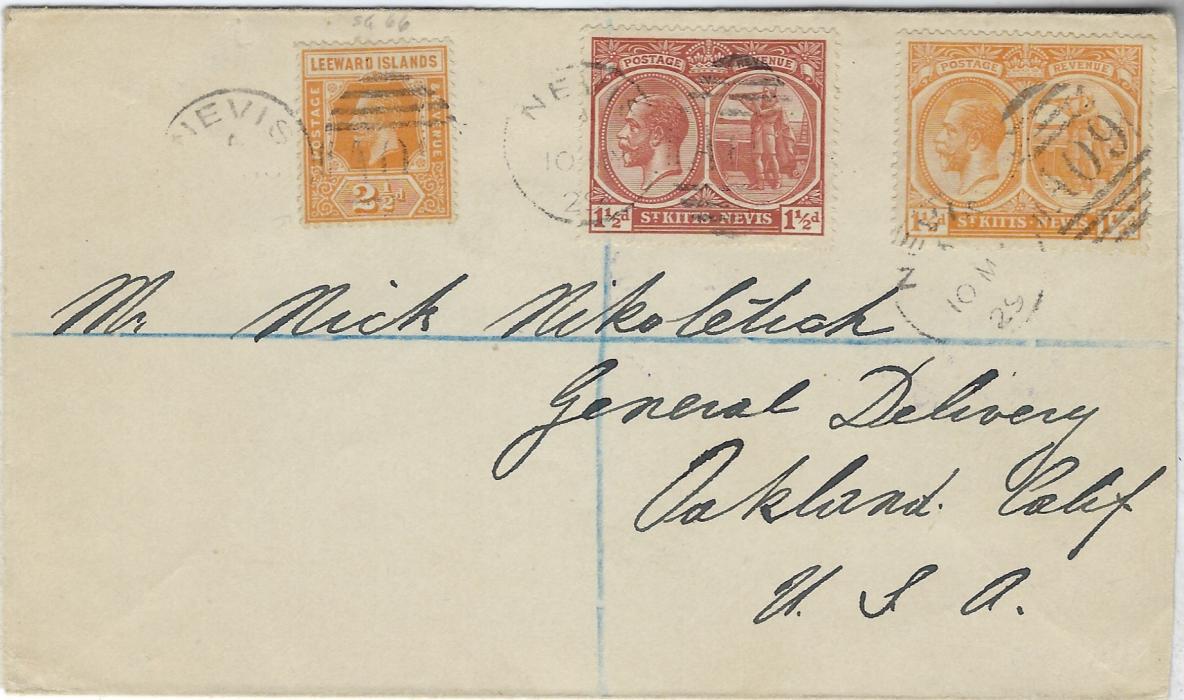 SG 66
LEEWARD ISLANDS
POSTAGE
REVENUE
2½d
NEVIS
POSTAGE REVENUE
1½d ST KITTS-NEVIS 1½d
NEVIS
10
29
POSTAGE REVENUE
ST KITTS-NEVIS
A09
10 M
29
Mr Nick Nikoletich
General Delivery
Oakland. Calif
U. S A.